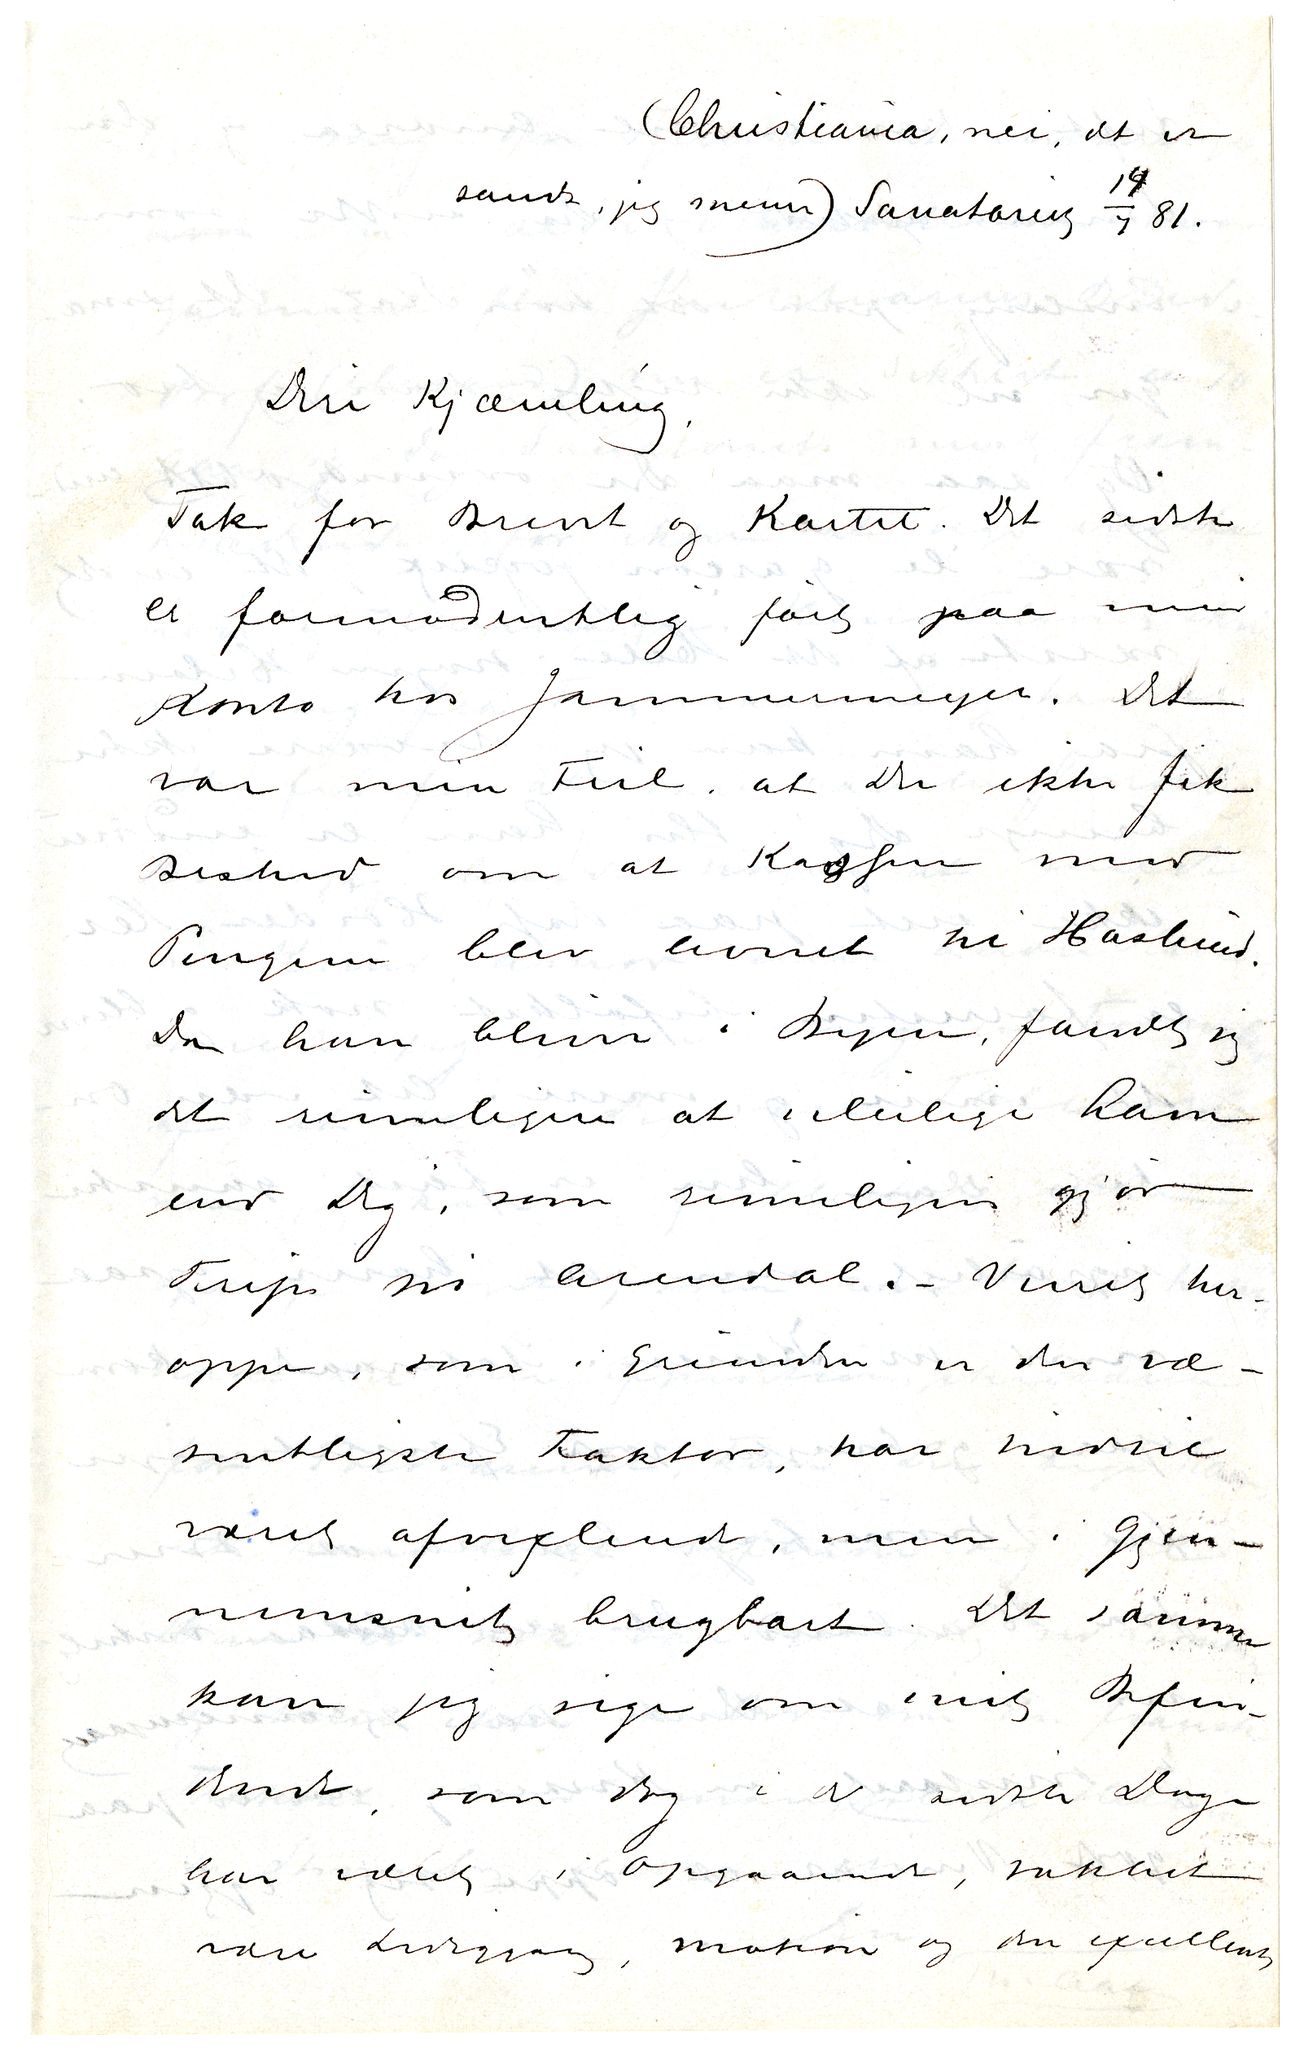 (Christiania, nei, det er
sandt, jeg mener) Sanatoriet 14/7 81.
Din Kjæmling,
Tak for Brevet og Kartet. Det sidste
er formodentlig ført paa min
Konto hos Jammermeyer. Det
var min Feil, at Du ikke fik
Besked om at Kassen med
Pengene blev levnet til Haslund.
Da han bliver i Byen, fandt jeg
det rimeligere at uleilige ham
end Dig, som rimeligvis gjør
Trips til Arendal. – Veiret her-
oppe, som i Grunden er den væ-
sentligste Faktor, har hidtil
været afvexlende, men i Gjen-
nemsnit brugbart. Det samme
kan jeg sige om mit Befin-
dende, som dog i de sidste Dage
har været i Opgaaende, takket
være Lediggang, Motion og den excellente